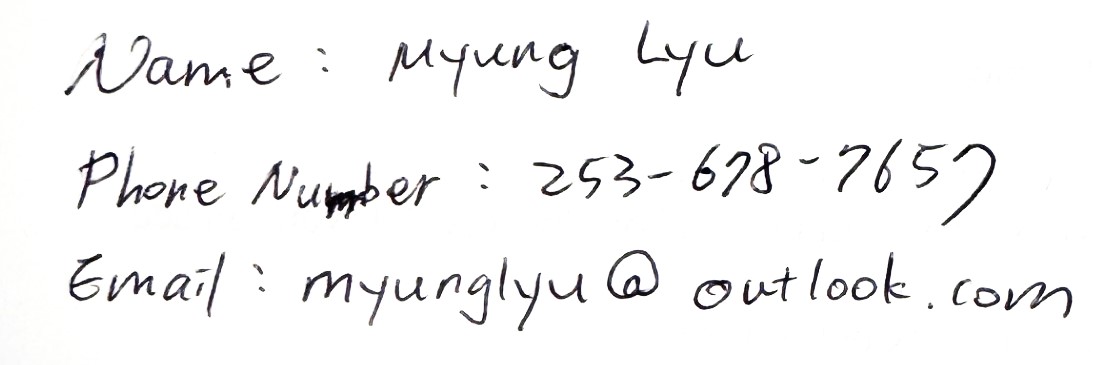 Name : Myung Lyu
Phone Number : 253-678-7657
Email : myunglyu@outlook.com